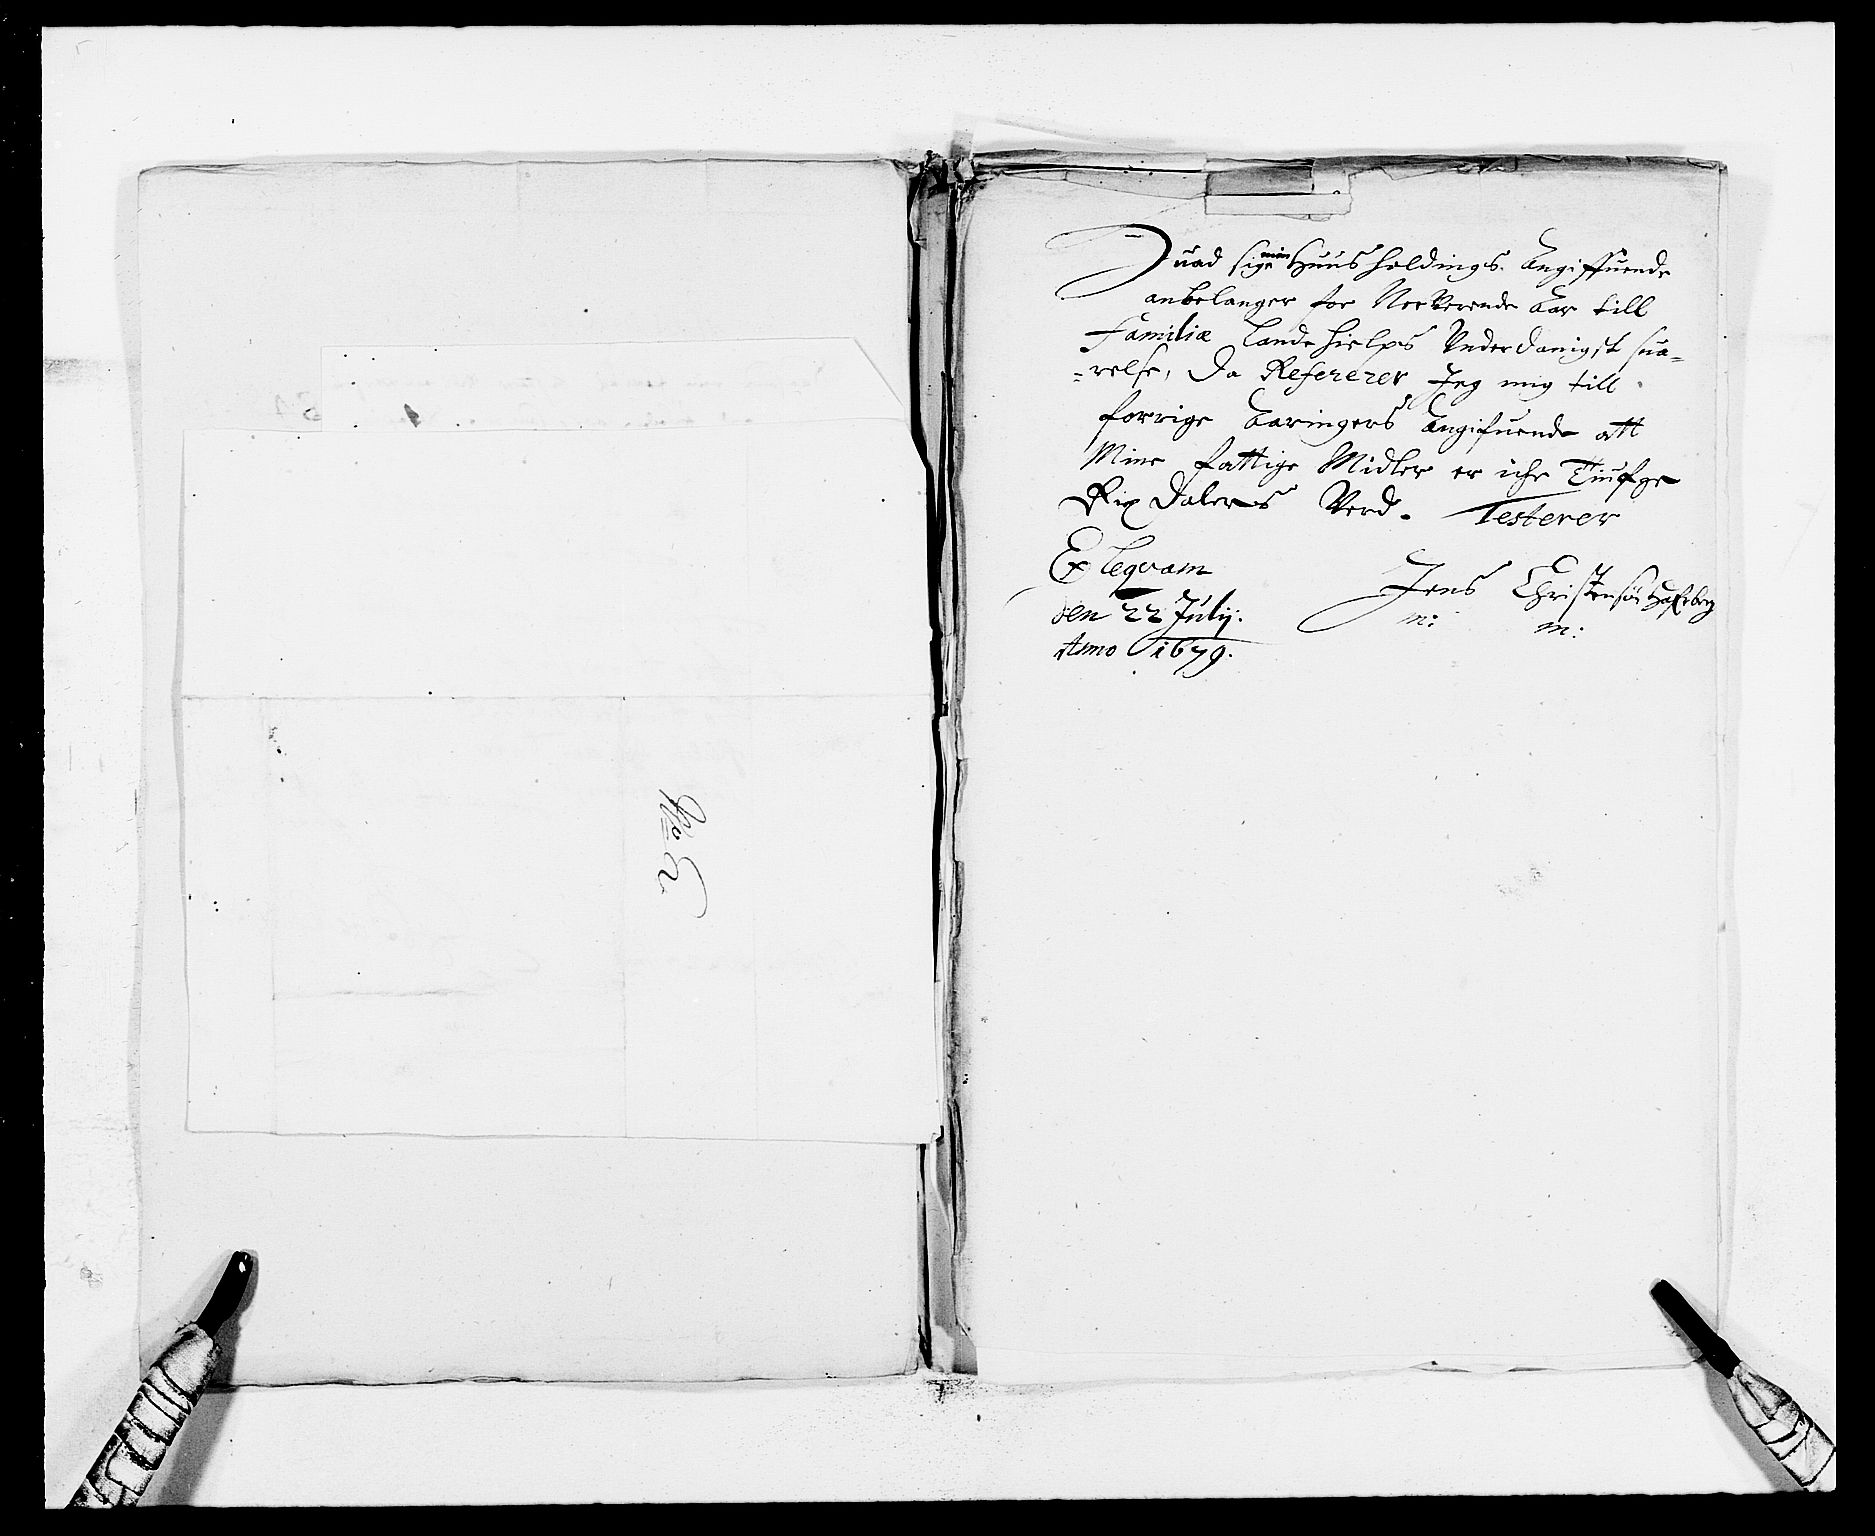 No 2
Huad sig min Huusholdings Angiffuende
anbelanger for Nerverende Aar till
Familiæ Landehielps Vnderdanigst sua-
=relse, Da Refererer Jeg mig till
forrige Aaringers Angifuende att
Mine fattige Midler er iche Tiufge
Rix Dalers Verd. Testerer
Ex
den 22 Julij:
Anno 1679.
Jens Christensøn
m: m: